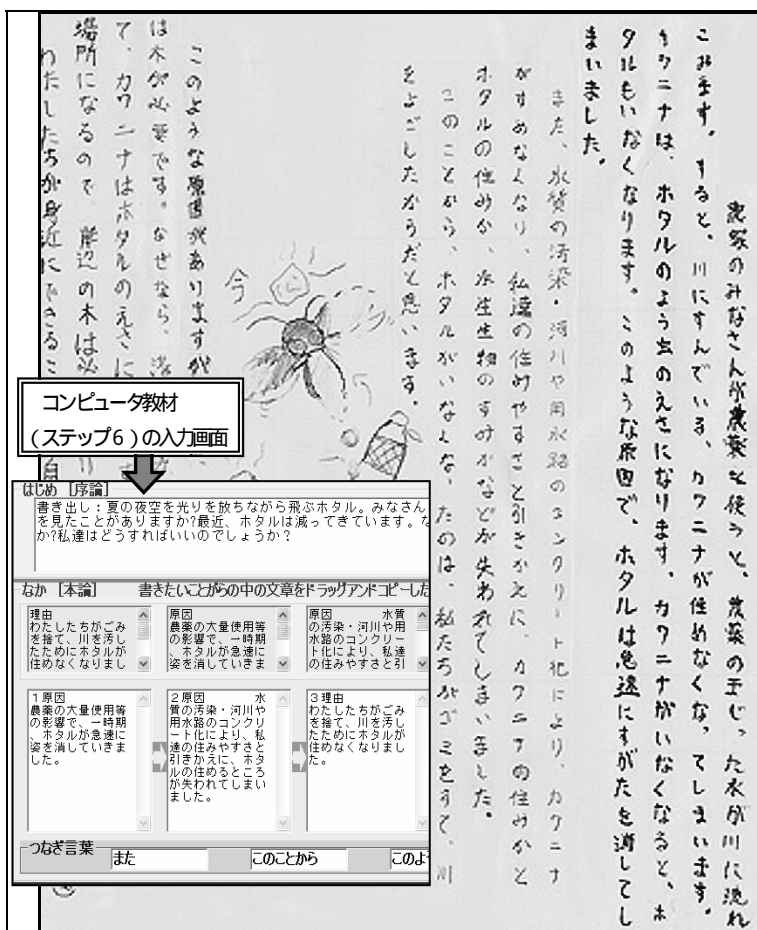 農家のみなさんが農薬を使うと、農薬のまじった水が川に流れ
こみます。すると、川にすんでいる、カワニナが住めなくなってしまいます。
カワニナは、ホタルのよう虫のえさになります。カワニナがいなくなると、ホ
タルもいなくなります。このような原因で、ホタルは急速にすがたを消してし
まいました。
また、水質の汚染・河川や用水路のコンクリート化により、カワニナ
がすめなくなり、私達の住みやすさと引きかえに カワニナの住みかと
ホタルの住みか、水生生物のすみかなどが失われてしまいました。
このことから、ホタルがいなくなったのは、私たちがゴミをすて、川
をよごしたからだと思います。
今
このような原因がありますが
は木が必要です。なぜなら、
て、カワニナはホタルのえさに
場所になるので 岸辺の木は必
わたしたちが身近にできるこ
コンピュータ教材
(ステップ6)の入力画面
はじめ [序論]
書き出し：夏の夜空を光りを放ちながら飛ぶホタル。みなさん
を見たことがありますか?最近、ホタルは減ってきています。な
か?私達はどうすればいいのでしょうか？
なか [本論] 書きたいことがらの中の文章をドラッグアンドコピーした
理由
わたしたちがごみ
を捨て、川を汚し
たためにホタルが
住めなくなりまし
原因
農薬の大量使用等
の影響で、一時期
、ホタルが急速に
姿を消していきま
原因 水質
の汚染・河川や用
水路のコンクリー
ト化により、私達
の住みやすさと引
1原因
農薬の大量使用等
の影響で、一時期
、ホタルが急速に
姿を消していきま
した。
2原因 水
質の汚染・河川や
用水路のコンクリ
ート化により、私
達の住みやすさと
引きかえに、ホタ
ルの住めるところ
が失われてしまい
ました。
3理由
わたしたちがごみ
を捨て、川を汚し
たためにホタルが
住めなくなりまし
た。
つなぎ言葉
また
このことから
このよ